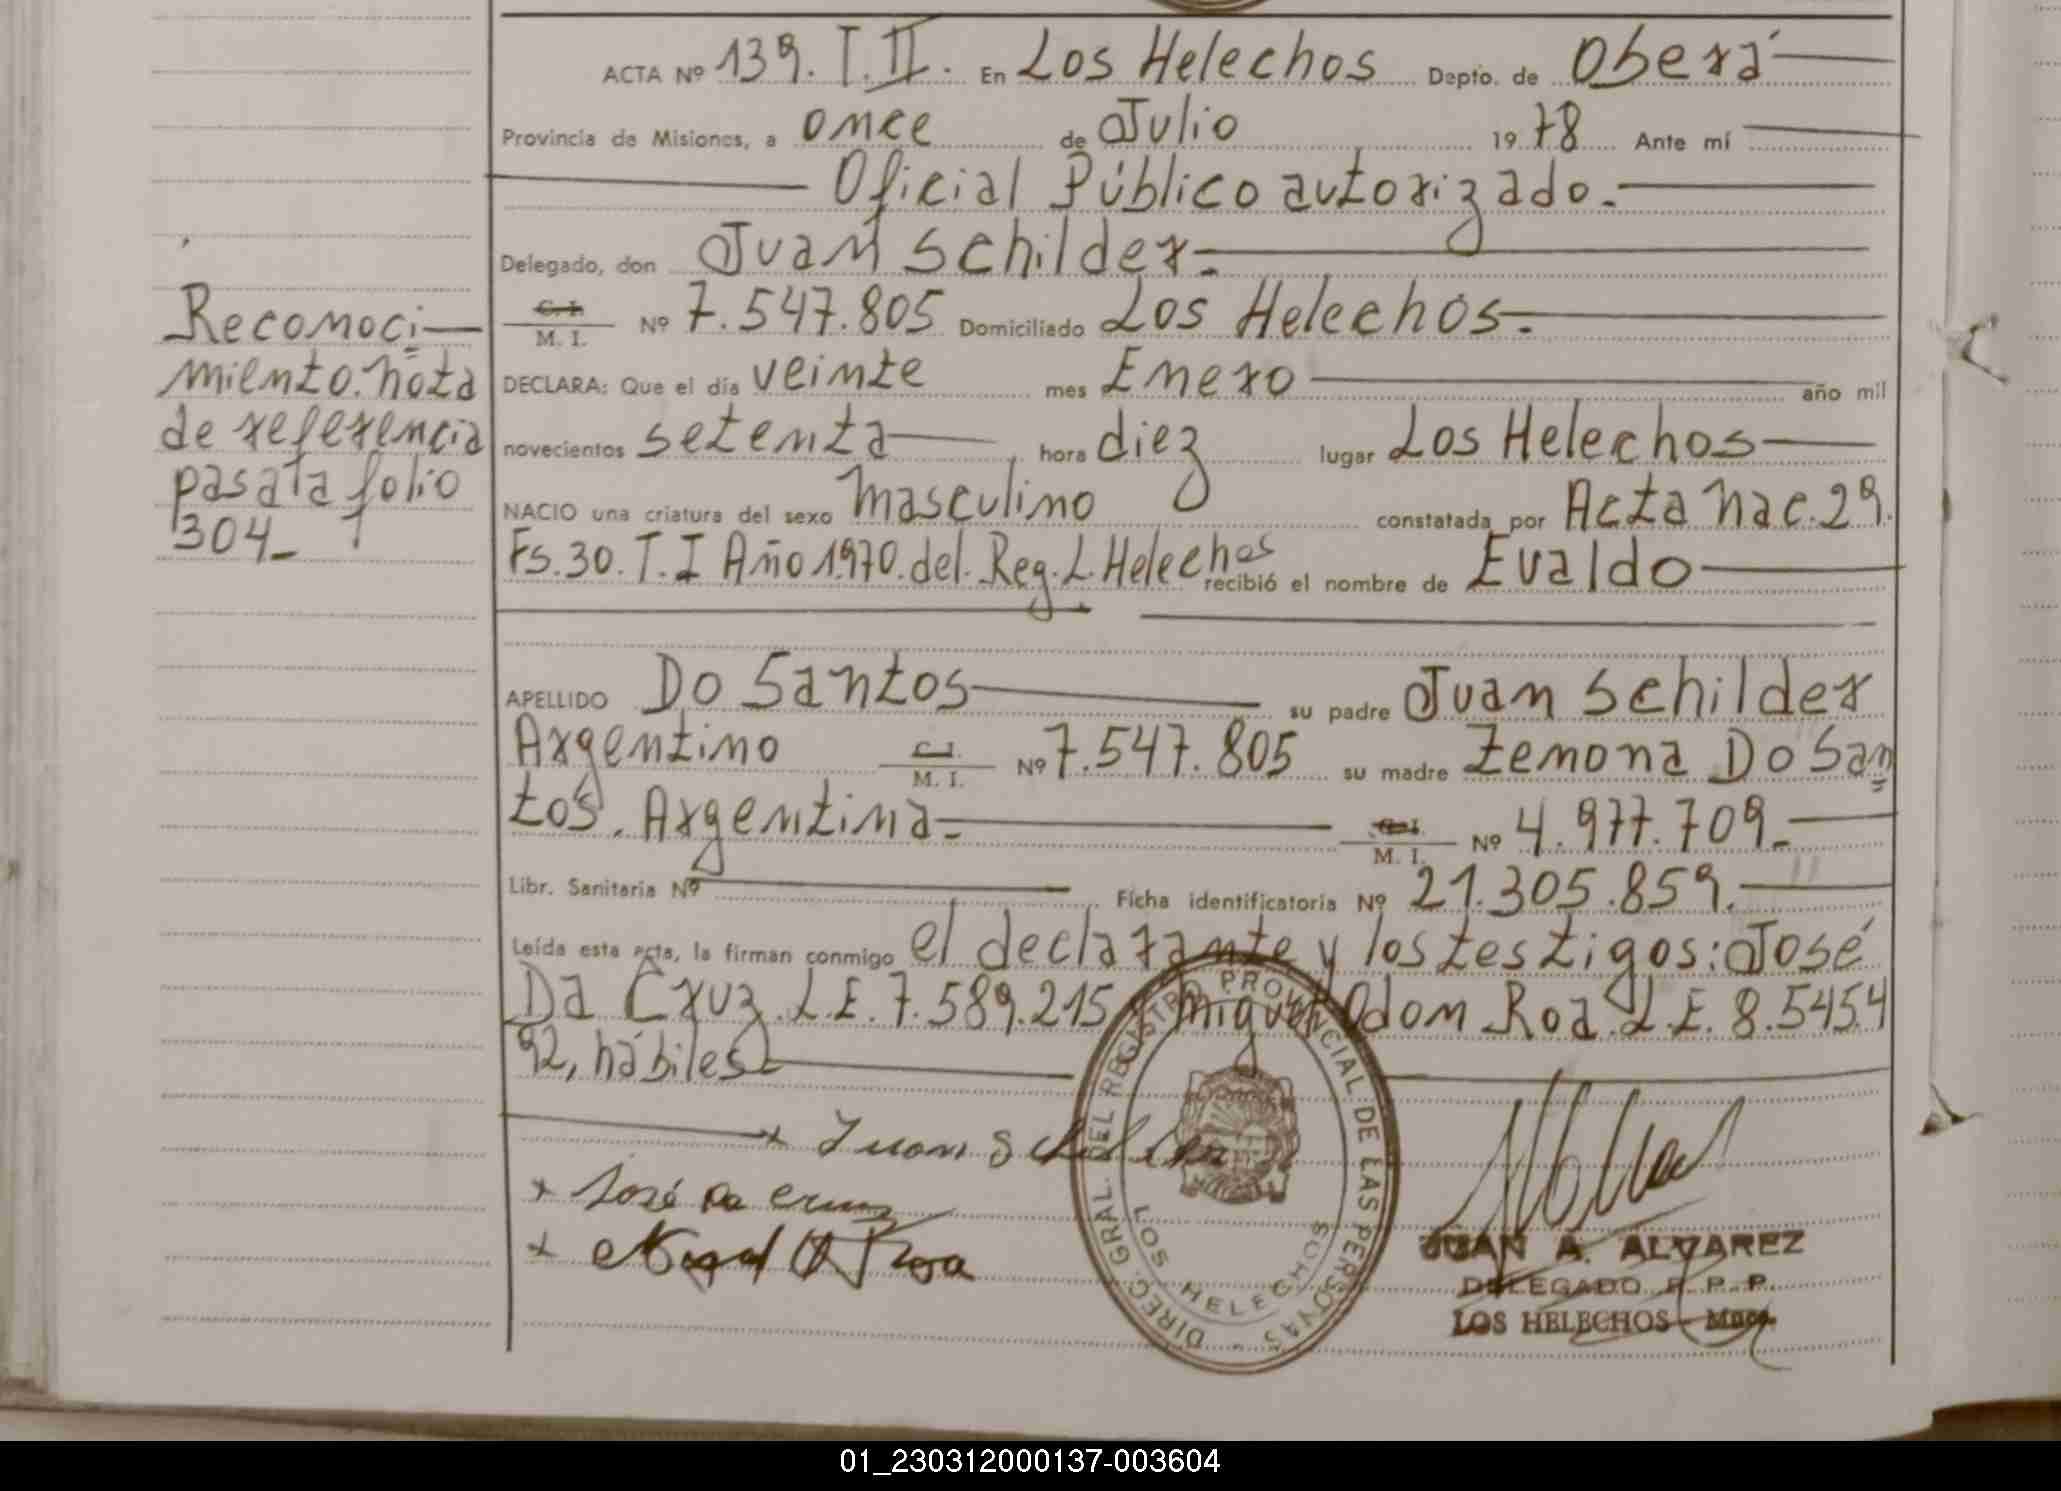 ACTA Nº 139. T. II. En Los Helechos Depto. de Oberá
Provincia de Misiones, a once de Julio 1978 Ante mí
Oficial Público autorizado.
Delegado, don Juan Schilder.
C. I.
M. I. Nº 7.547.805 Domiciliado Los Helechos.
DECLARA: Que el día veinte mes Enero año mil
novecientos setenta hora diez lugar Los Helechos
NACIO una criatura del sexo masculino constatada por Acta Nac. 29.
Fs. 30. T. I Año 1.970. del. Reg. L. Helechos recibió el nombre de Evaldo
APELLIDO Do Santos su padre Juan Schilder
Argentino C. I.
M. I. Nº 7.547.805 su madre Zemona Do San
tos. Argentina. C. I.
M. I. Nº 4.977.709.
Libr. Sanitaria Nº Ficha identificatoria Nº 21.305.859.
Leída esta acta, la firman conmigo el declarante y los testigos: José
Da Cruz. L.E. 7.589.215 y Miguel Odom Roa. L.E. 8.545.4
92, hábiles
Reconoci-
miento. nota
de referencia
pasa la folio
304_
x Juan Schilder
x José Da Cruz
x Miguel O Roa
DIREC. GRAL. DEL REGISTRO PROVINCIAL DE LAS PERSONAS
LOS HELECHOS
JUAN A. ALVAREZ
DELEGADO R. P. P.
LOS HELECHOS - Mnes.
01_230312000137-003604